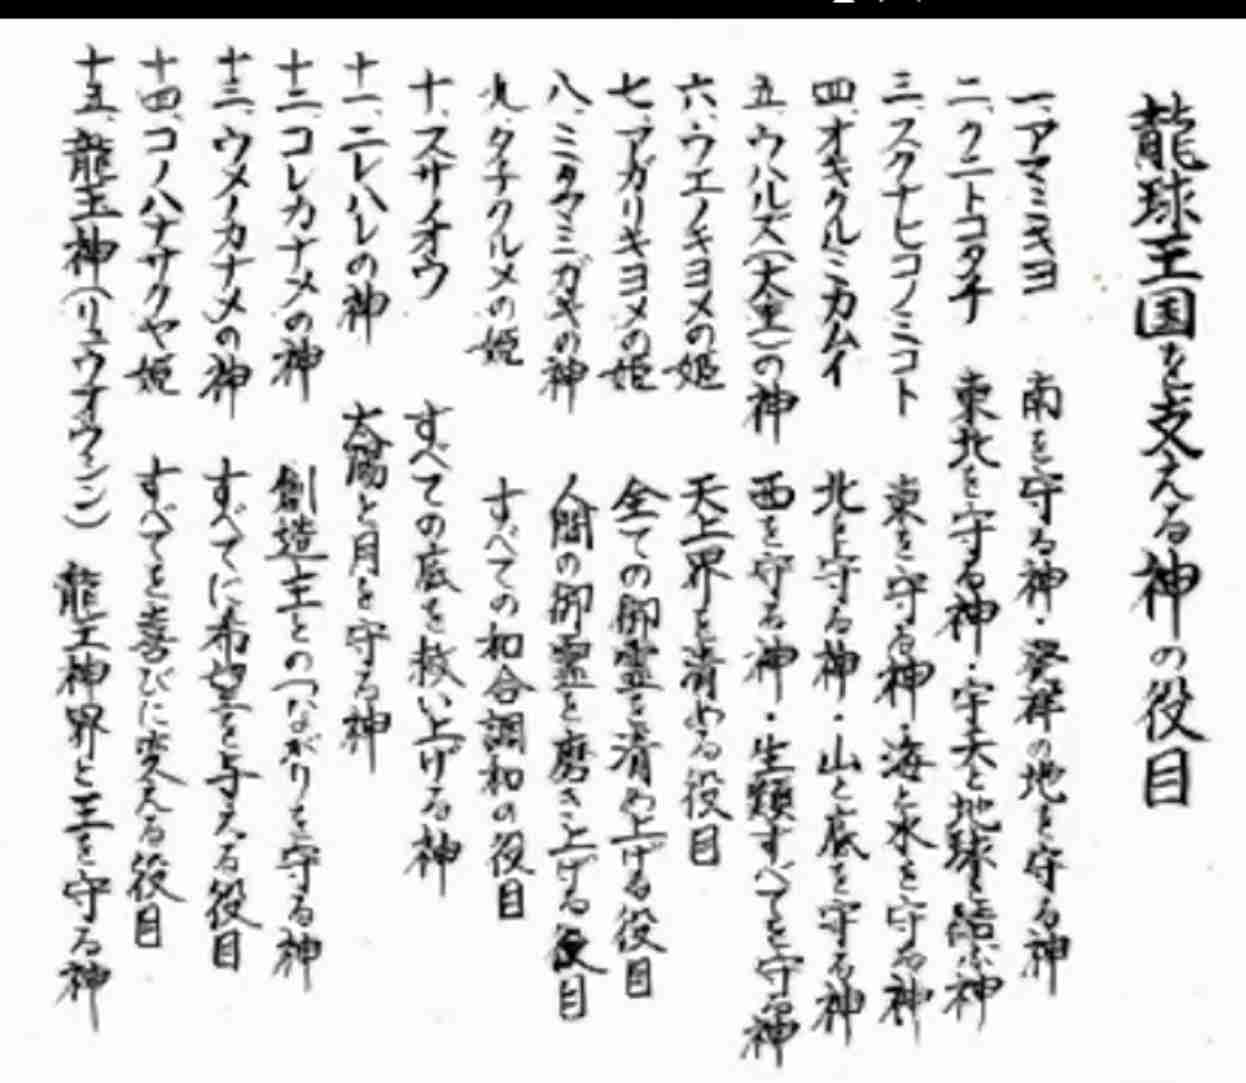 龍球王国を支える神の役目
一、アマミキヨ 南を守る神・発祥の地を守る神
二、クニトコタチ 東北を守る神・宇天と地球を結ぶ神
三、スクナヒコノミコト 東を守る神・海と水を守る神
四、オキクルミカムイ 北を守る神・山と底を守る神
五、ウハルズ(大主)の神 西を守る神・生類すべてを守る神
六、ウエノキヨメの姫 天上界を清める役目
七、アガリキヨメの姫 全ての御霊を清め上げる役目
八、ミタマミガキの神 人間の御霊を磨き上げる役目
九、クチクルメの姫 すべての和合調和の役目
十、スサノオウ すべての底を救い上げる神
十一、ニレハレの神 太陽と月を守る神
十二、コレカナメの神 創造主とのつながりを守る神
十三、ウメノカナメの神 すべてに希望を与える役目
十四、コノハナサクヤ姫 すべてを喜びに変える役目
十五、龍王神(リュウオウジン) 龍王神界と王を守る神